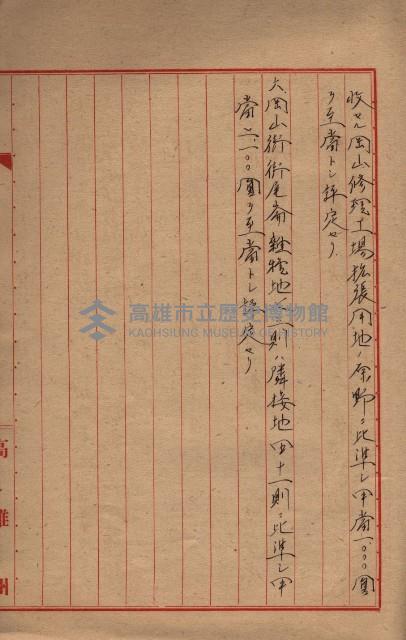 收セル岡山修繕工場拡張用地ノ原野ニ比準シ甲當一、〇〇〇圓
ヲ至當トシ評定セリ
六、岡山街街尾崙雜種地 則ハ隣接地四十一則ニ比準シ甲
當 〇〇圓ヲ至當トシ評定セリ
高雄市立歷史博物館
KAOHSIUNG MUSEUM OF HISTORY
高雄州